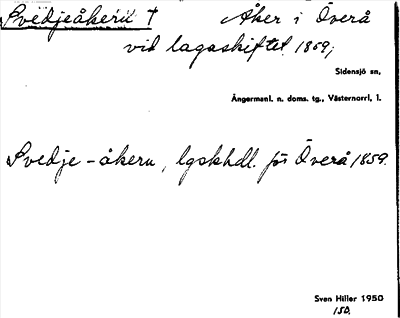 Svedjeåkern † Åker i Överå
vid lagaskiftet 1859;
Sidensjö sn,
Ångermanl. n. doms. tg., Västernorrl. l.
Svedje-åkern, lgskhdl. för Överå 1859.
Sven Hiller 1950
150.